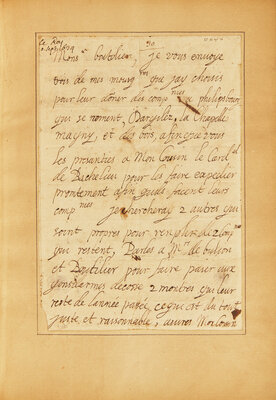 Le Roy
Mons.r bouthilier, je vous envoye
trois de mes mousq.res que jay choisis
pour leur doner des comp.nies a philipsbourg
qui se noment, Dargilez, la Chapelle
magny, et des bois, afin que vous
les presanties a Mon Cousin le Card.al
de Richelieu pour les faire expedier
prontement afin quils facent leurs
comp.nies jacheveray 2 autres qui
soint propres pour
qui restent, Parles a M.rs de bulion
et Boutilier pour faire paier aux
gensdarmes decosse 2 montres qui leur
reste de lannee passée, ce qui est du tout
juste et raisonnable, Mon cousin